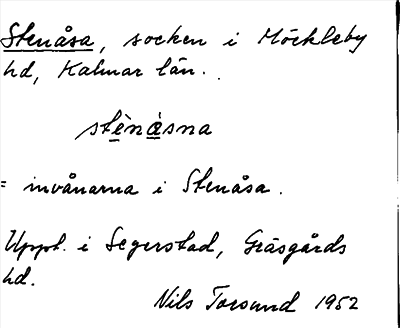 Stenåsa, socken i Möckleby
hd, Kalmar län.
stènåsna
= invånarna i Stenåsa.
Uppt. i Segerstad, Gräsgårds
hd.
Nils Torsund 1952